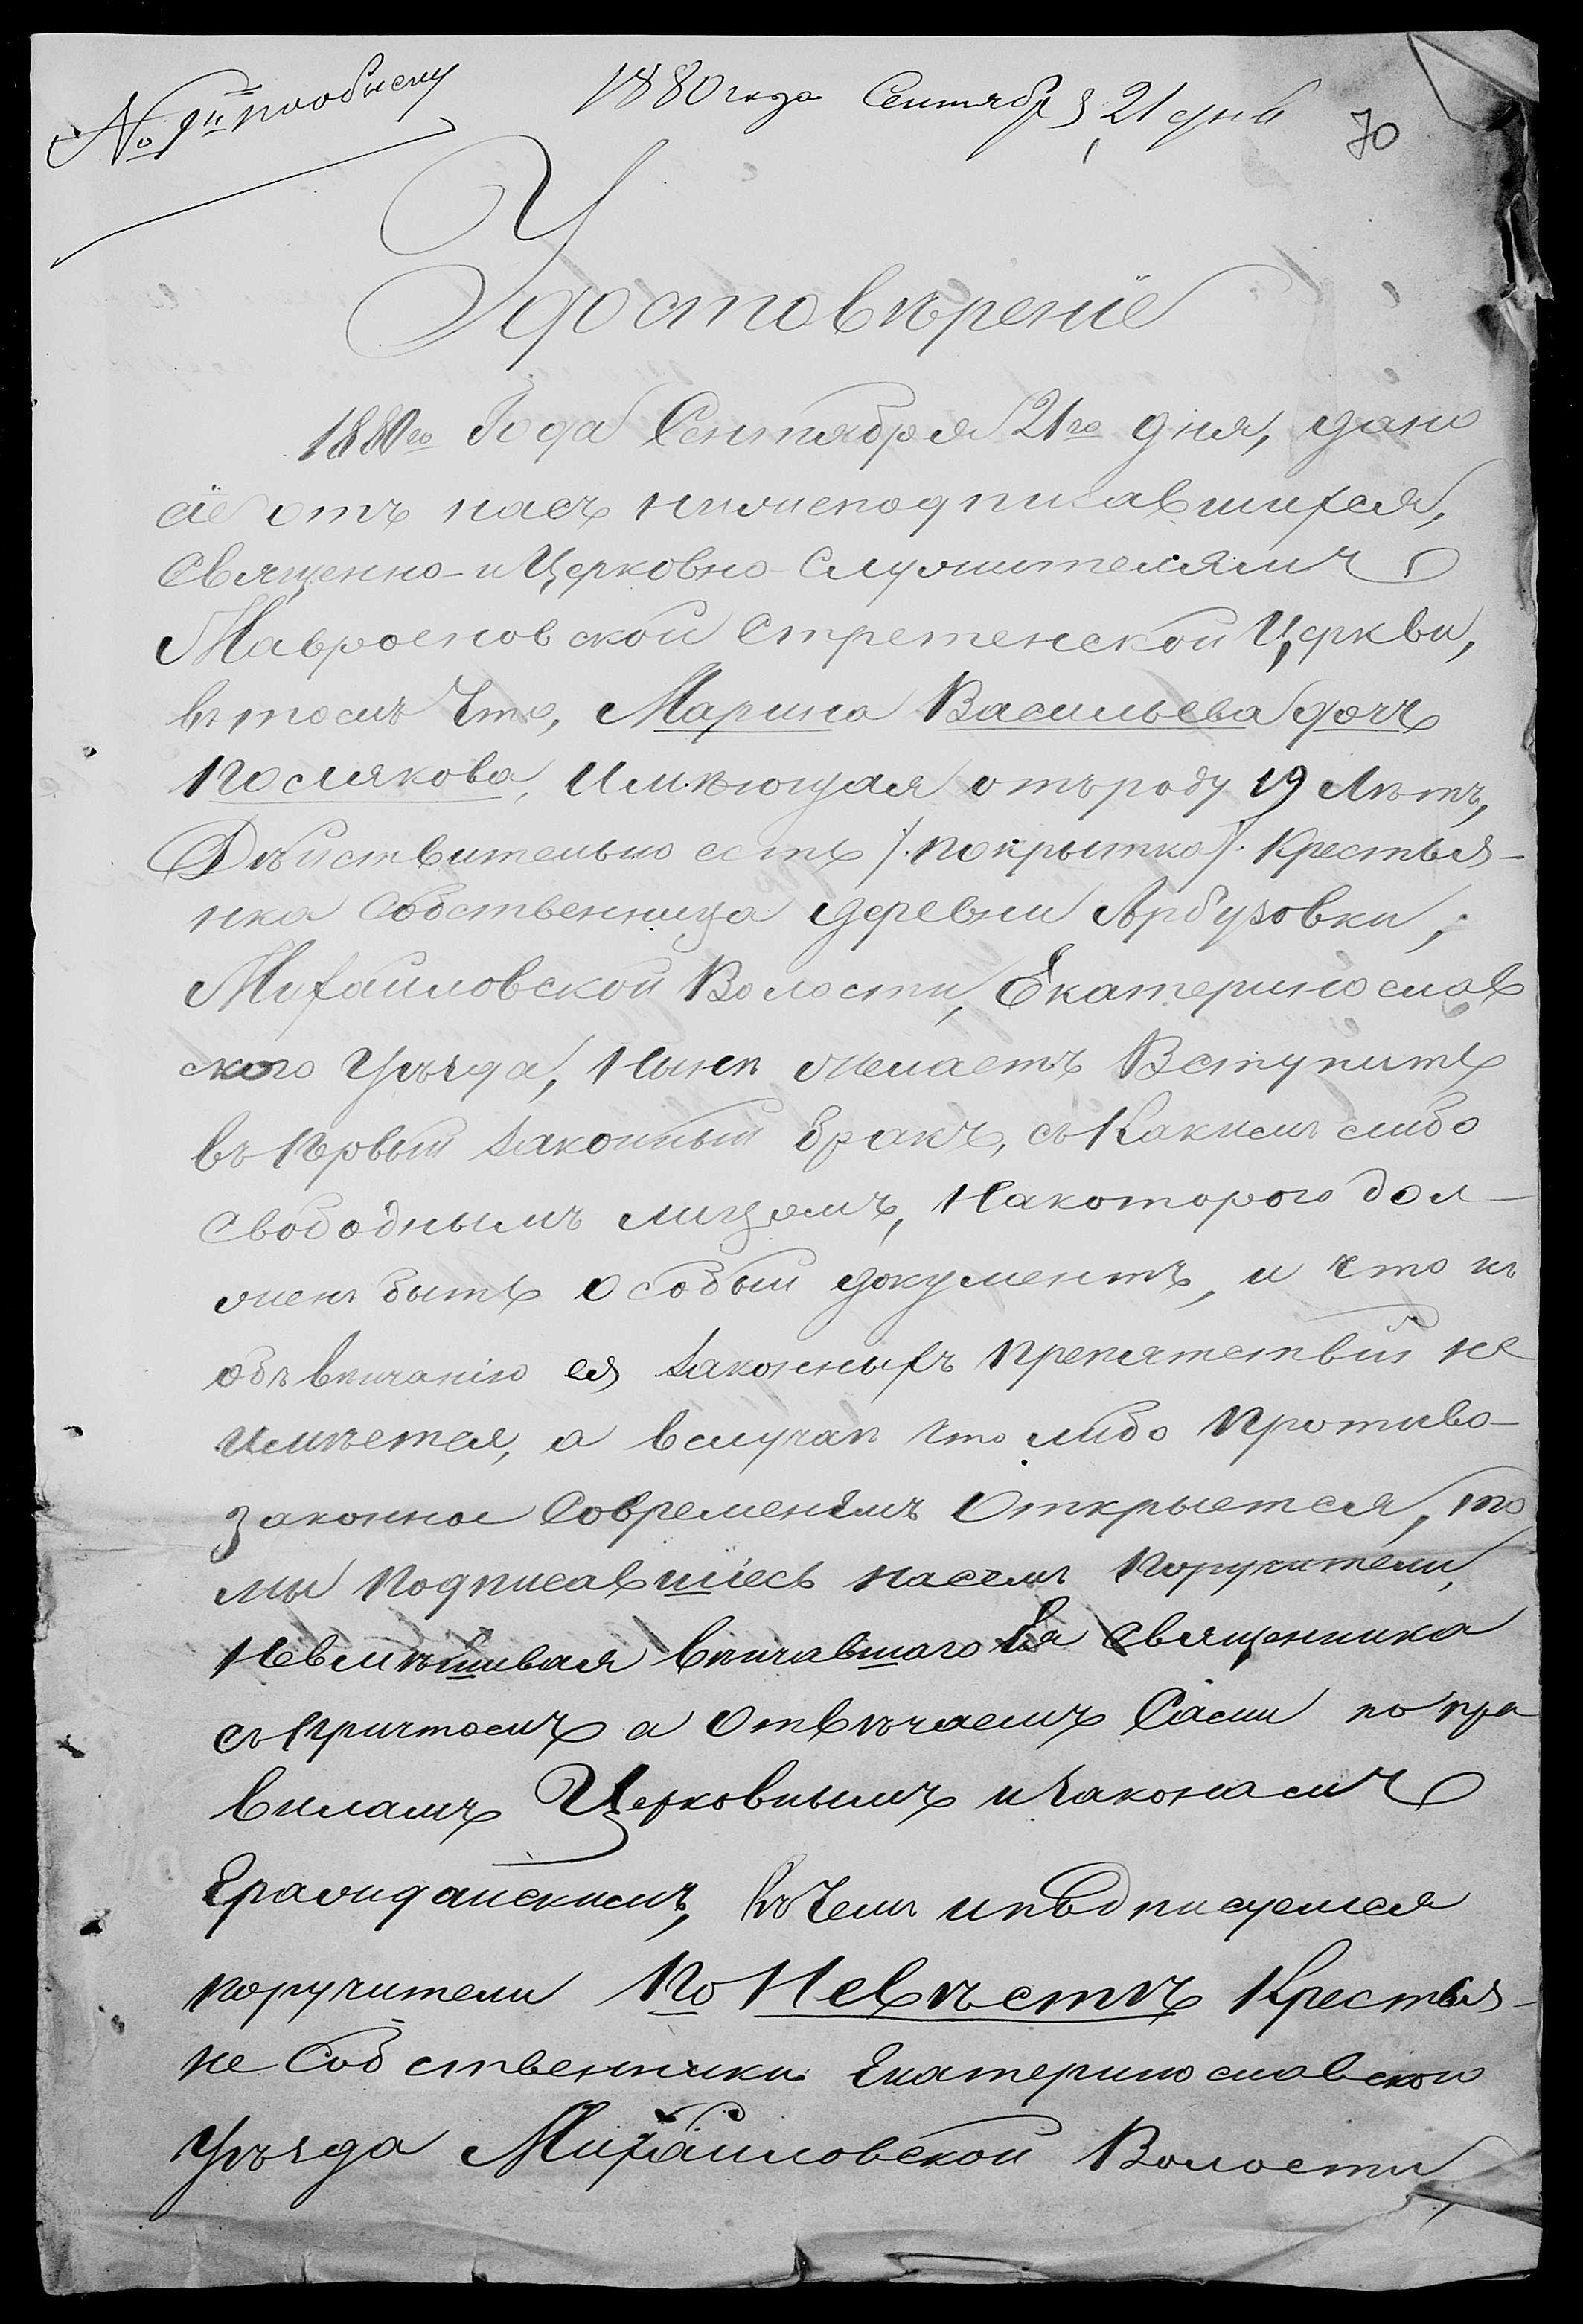 № 9й по обыску
1880 года Сентября 21 дня
70
Удостовѣреніе
1880го Года Сентября 21го дня, дано
сіе отъ насъ нижеподписавшихся,
Священно-и Церковно Служителямъ
Мавроеновской Стретенской Церкви,
въ томъ Что, Марина Васильева дочь
Послякова, Имѣющая отъ роду 19 Лѣтъ,
Дѣйствительно есть /:покрытка/: Крестья-
нка Собственница деревни Арбузовки,
Михайловской Волости, Екатеринослав
ского Уѣзда, Нынѣ желаетъ Вступить
въ первый законный бракъ, съ Какимъ либо
Свободнымъ лицомъ, На которого дол-
женъ быть Особый документъ, и что къ
обвѣнчанію ея законныхъ препятствій не
имѣется, а вслучаѣ что либо Противо-
законное Современемъ Откроется, то
мы Подписавшіесь на семъ Поручители,
Невмѣшивая вѣнчавшаго Ея Священника
съ Причтомъ а Отвѣчаемъ Сами по пра
виламъ Церковнымъ и законамъ
Гражданскимъ, въ Чемъ и подписуемся
поручители По Невѣстѣ Крестья-
не Собственники Екатеринославского
Уѣзда Михайловской Волости,